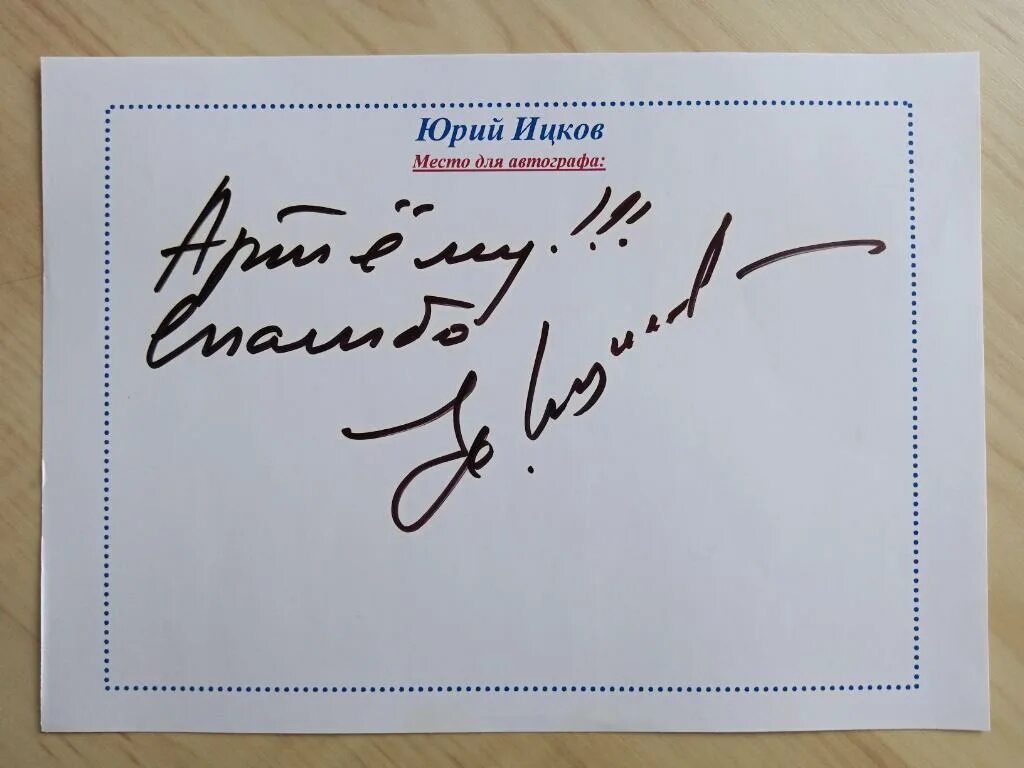 Юрий Ицков
Место для автографа:
Артёму!!!
Спасибо
Ю. Ицков